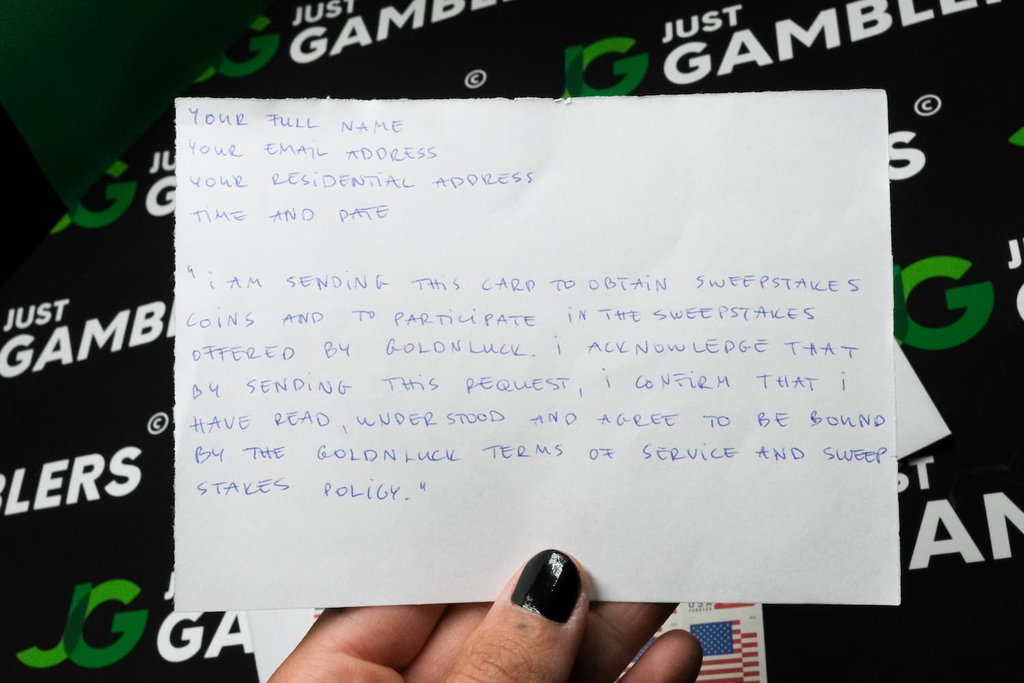 JUST
GAMBLERS
©
JG
JUST
GAMBLERS
©
YOUR FULL NAME
YOUR EMAIL ADDRESS
YOUR RESIDENTIAL ADDRESS
TIME AND DATE
"I AM SENDING THIS CARD TO OBTAIN SWEEPSTAKES
COINS AND TO PARTICIPATE IN THE SWEEPSTAKES
OFFERED BY GOLDNLUCK. I ACKNOWLEDGE THAT
BY SENDING THIS REQUEST, I CONFIRM THAT I
HAVE READ, UNDERSTOOD AND AGREE TO BE BOUND
BY THE GOLDNLUCK TERMS OF SERVICE AND SWEEP
STAKES POLICY."
JG
JU
G
S
JUST
GAMBL
©
BLERS
JG
J
G
JG
GA
ST
AN
USA
FOREVER